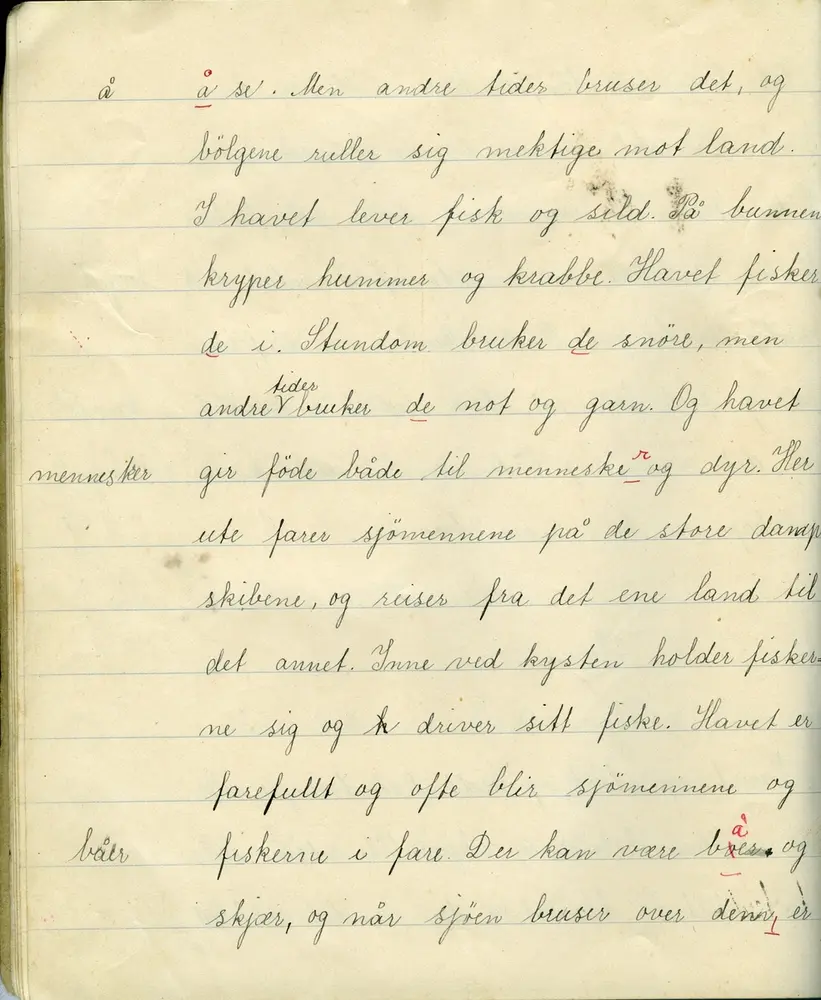 å å se. Men andre tider bruser det, og
bölgene ruller sig mektige mot land.
I havet lever fisk og sild. På bunnen
kryper hummer og krabbe. Havet fisker
de i. Stundom bruker de snöre, men
tider
andre V bruker de not og garn. Og havet
mennesker gir föde både til menneske r og dyr. Her
ute farer sjömennene på de store damp
skibene, og reiser fra det ene land til
det annet. Inne ved kysten holder fisker=
ne sig og driver sitt fiske. Havet er
farefullt og ofte blir sjömennene og
båer fiskerne i fare. Der kan være båer og
skjær, og når sjöen bruser over dem, er